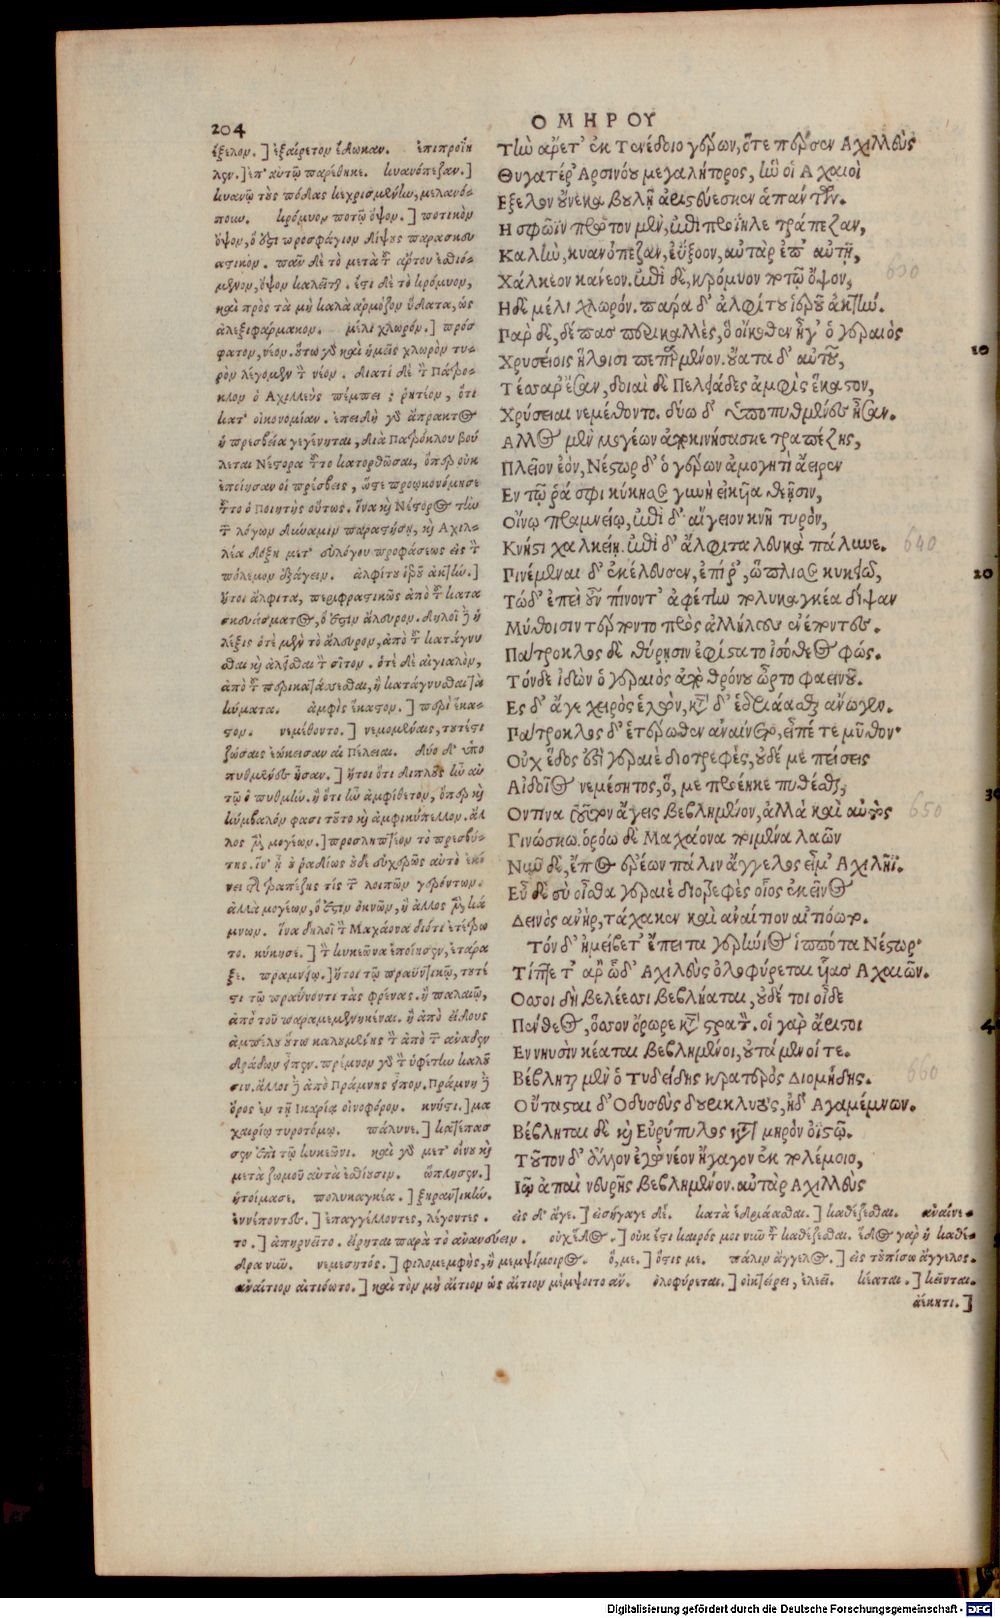 204
ΟΜΗΡΟΥ
ἐξελον.] ἐξαίρετον ἔδωκαν. ἐπιπροΐη
λεν.] ἐπ' αὐτῷ παρέθηκε. κυανόπεζαν.]
κυανῷ τοὺς πόδας κεχρισμένην, μελανό-
πουν. κρόμυον ποτῷ ὄψον.] ποτικὸν
ὄψον, ὅ ἐστι προσφάγιον δίψους παρασκευ
αστικόν. πᾶν δὲ τὸ μετὰ τοῦ ἄρτου ἐσθιό-
μενον, ὄψον καλεῖται. ἔστι δὲ τὸ κρόμυον,
καὶ πρὸς τὰ μὴ καλὰ ἁρμόζον ὕδατα, ὡς
ἀλεξιφάρμακον. μέλι χλωρόν.] πρόσ
φατον, νέον. οὕτω γὸ καὶ ἡμεῖς χλωρὸν τυ-
ρὸν λέγομεν τὸν νέον. διατί δὲ τὸν Πάτρο-
κλον ὁ Ἀχιλλεὺς πέμπει; ῥητέον, ὅτι
κατ' οἰκονομίαν. ἐπειδὴ γὸ ἄπρακτος
ἡ πρεσβεία γεγένηται, διὰ Πατρόκλου βού
λεται Νέστορα τοῦτο κατορθῶσαι, ὅπερ οὐκ
ἐποίησαν οἱ πρέσβεις, ὥστε προῳκονόμησε
τοῦτο ὁ Ποιητὴς οὕτως, ἵνα καὶ Νέστορος τὴν
τῶν λόγων δύναμιν παραστήσῃ, καὶ Ἀχιλ-
λέα δόξῃ μετ' εὐλόγου προφάσεως εἰς τὸν
πόλεμον ἐξάγειν. ἀλφίτου ἱεροῦ ἀκτήν.]
ἤτοι ἄλφιτα, περιφραστικῶς ἀπὸ τοῦ κατα
σκευάσματος, ὅ ἐστιν ἄλευρον. δηλοῖ δὲ ἡ
λέξις ὁτὲ μὲν τὸ ἄλευρον, ἀπὸ τοῦ κατάγνυ
σθαι καὶ ἀλήθεσθαι τὸν σῖτον. ὁτὲ δὲ αἰγιαλόν,
κύματα. ἀμφὶς ἕκαστον.] περὶ ἕκα-
στον. νεμέθοντο.] νεμομέναις, τουτέστι
ζώσαις ἐῴκεισαν αἱ Πέλειαι. δύο δ' ὑπὸ
πυθμένες ἦσαν.] ἤτοι ὅτι διπλοῦς ἦν αὐ
τῷ ὁ πυθμήν. ἢ ὅτι ἦν ἀμφίθετον, ὅπερ καὶ
κύμβαλόν φασι τοῦτο καὶ ἀμφικύπελλον. ἄλ
λος μὲν μογέων.] προσληπτέον τὸ πρεσβύ-
της. ἵν' ᾖ ὁ ῥᾳδίως οὐδὲ εὐχερῶς αὐτὸ ἐκί
νει τῆς τραπέζης τίς τῶν λοιπῶν γερόντων.
ἀλλὰ μογέων, ὅ ἐστιν ὀκνῶν, ἢ ἄλλος μὲν κά
μνων. ἵνα δηλοῖ τὸν Μαχάονα διότι ἐτέτρω
το. κύκησε.] τὸν κυκεῶνα ἐποίησεν, ἐτάρα
ξε. πραμνίῳ.] ἤτοι τῷ πραϋντικῷ, τουτέ
στι τῷ πραΰνοντι τὰς φρένας. ἢ παλαιῷ,
ἀπὸ τοῦ παραμεμενηκέναι. ἢ ἀπὸ εἴδους
ἀμπέλου οὕτω καλουμένης
σιν. ἄλλοι δὲ ἀπὸ Πράμνης ὄρους. Πράμνη δὲ
ὄρος ἐν τῇ Ἰκαρίᾳ οἰνοφόρον. κνήστι.] μα
χαιρίῳ τυροτόμῳ. πάλυνε.] κατέπασ
σεν ἐπὶ τῷ κυκεῶνι. καὶ γὸ μετ' οἴνου καὶ
μετὰ ζωμοῦ αὐτὰ ἐσθίουσιν. ὥπλησεν.]
ἡτοίμασε. πολυκαγκέα.] ξηραντικήν.
ἐννέποντες.] ἐπαγγέλλοντες, λέγοντες. εἰς δ' ἄγε.] εἰσήγαγε δέ. κατὰ ἑδριάασθαι.] καθέζεσθαι. ἀναίνε-
το.] ἀπηρνεῖτο. εἴρηται παρὰ τὸ αὐαινεύειν. οὐχ ἕδος.] οὐκ ἔστι καιρός μοι νῦν τοῦ καθέζεσθαι. ἕδος γὰρ ἡ καθέ-
δρα νῦν. νεμεσητός.] φιλομεμφής, ἢ μεμψίμοιρος. ὅ, με.] ὅστις με. πάλιν ἄγγελος.] εἰς τοὐπίσω ἄγγελος.
ἀναίτιον αἰτιόωτο.] καὶ τὸν μὴ αἴτιον ὡς αἴτιον μέμψοιτο ἄν. ὀλοφύρεται.] οἰκτείρει, ἐλεεῖ. κέαται.] κεῖνται.
ἀέκητι.]
Τὴν ἄρετ' ἐκ Τενέδοιο γέρων, ὅτε πέρσεν Αχιλλεὺς
Θυγατέρ' Ἀρσινόου μεγαλήτορος, ἣν οἱ Αχαιοὶ
Εξελον οὕνεκα βουλῇ ἀριστεύεσκεν ἁπάντων.
Η σφῶϊν πρῶτον μὲν, ἐπὶ προΐηλε τράπεζαν,
Καλὴν, κυανόπεζαν, ἐΰξοον, αὐτὰρ ἐπ' αὐτῇ,
Χάλκεον κάνεον. ἐπὶ δὲ, κρόμυον ποτῷ ὄψον,
Ηδὲ μέλι χλωρόν. παρὰ δ' ἀλφίτου ἱεροῦ ἀκτήν.
Παρ δὲ, δέπας περικαλλὲς, ὃ οἴκοθεν ἦγ' ὁ γεραιὸς
Χρυσείοις ἥλοισι πεπαρμένον. οὔατα δ' αὐτοῦ,
Τέσσαρ' ἔσαν, δοιαὶ δὲ Πελειάδες ἀμφὶς ἕκαστον,
10
Χρύσειαι νεμέθοντο. δύω δ' ὑπὸ πυθμένες ἦσαν.
Αλλος μὲν μογέων ἀποκινήσασκε τραπέζης,
Πλεῖον ἐὸν, Νέστωρ δ' ὁ γέρων ἀμογητὶ ἄειρεν
Εν τῷ ῥά σφι κύκησε γυνὴ εἰκυῖα θεῇσιν,
Οἴνῳ πραμνείῳ, ἐπὶ δ' αἴγειον κνῆ τυρὸν,
Κνήστι χαλκείῃ. ἐπὶ δ' ἄλφιτα λευκὰ πάλυνε.
Πινέμεναι δ' ἐκέλευσεν, ἐπεί ῥ', ὥπλισε κυκειῶ,
Τώδ' ἐπεὶ οὖν πίνοντ' ἀφέτην πολυκαγκέα δίψαν
Μύθοισιν τέρποντο πρὸς ἀλλήλους ἐνέποντες.
Πάτροκλος δὲ θύρῃσιν ἐφίστατο ἰσόθεος φώς.
20
Τόνδε ἰδὼν ὁ γεραιὸς ἀπὸ θρόνου ὦρτο φαεινοῦ.
Ες δ' ἄγε χειρὸς ἑλὼν, κατὰ δ' ἑδριάασθαι ἄνωγεν.
Πάτροκλος δ' ἑτέρωθεν ἀναίνετο, εἶπέ τε μῦθον·
Οὐχ ἕδος ἐστὶ γεραιὲ διοτρεφὲς, οὐδέ με πείσεις
Αἰδοῖος νεμέσητος, ὅ, με προέηκε πυθέσθαι,
Οντινα τοῦτον ἄγεις βεβλημένον, ἀλλὰ καὶ αὐτὸς
30
Γινώσκω. ὁρόω δὲ Μαχάονα ποιμένα λαῶν
Νῦν δὲ, ἔπος ἐρέων πάλιν ἄγγελος εἶμ' Αχιλῆϊ.
Εὖ δὲ σὺ οἶσθα γεραιὲ διοτρεφὲς οἷος ἐκεῖνος
Δεινὸς ἀνὴρ, τάχα κεν καὶ ἀναίτιον αἰτιόωτο.
Τὸν δ' ἠμείβετ' ἔπειτα γερήνιος ἱππότα Νέστωρ·
Τίπτε τ' αρ ὧδ' Αχιλεὺς ὀλοφύρεται υἷας Αχαιῶν.
Οσσοι δὴ βελέεσσι βεβλήαται, οὐδέ τοι οἶδε
Πένθεος, ὅσσον ὄρωρε κατὰ στρατόν. οἱ γὰρ ἄριστοι
40
Εν νηυσὶν κέαται βεβλημένοι, οὐτάμενοί τε.
Βέβληται μὲν ὁ Τυδείδης κρατερὸς Διομήδης.
Οὔτασται δ' Οδυσεὺς δουρικλυτὸς, ἠδ' Αγαμέμνων.
Βέβληται δὲ καὶ Εὐρύπυλος κατὰ μηρὸν ὀϊστῷ.
Τοῦτον δ' ἄλλον ἐγὼ νέον ἤγαγον ἐκ πολέμοιο,
Ιῷ ἀπαὶ νευρῆς βεβλημένον. αὐτὰρ Αχιλλεὺς
630
640
650
660
Digitalisierung gefördert durch die Deutsche Forschungsgemeinschaft - DFG